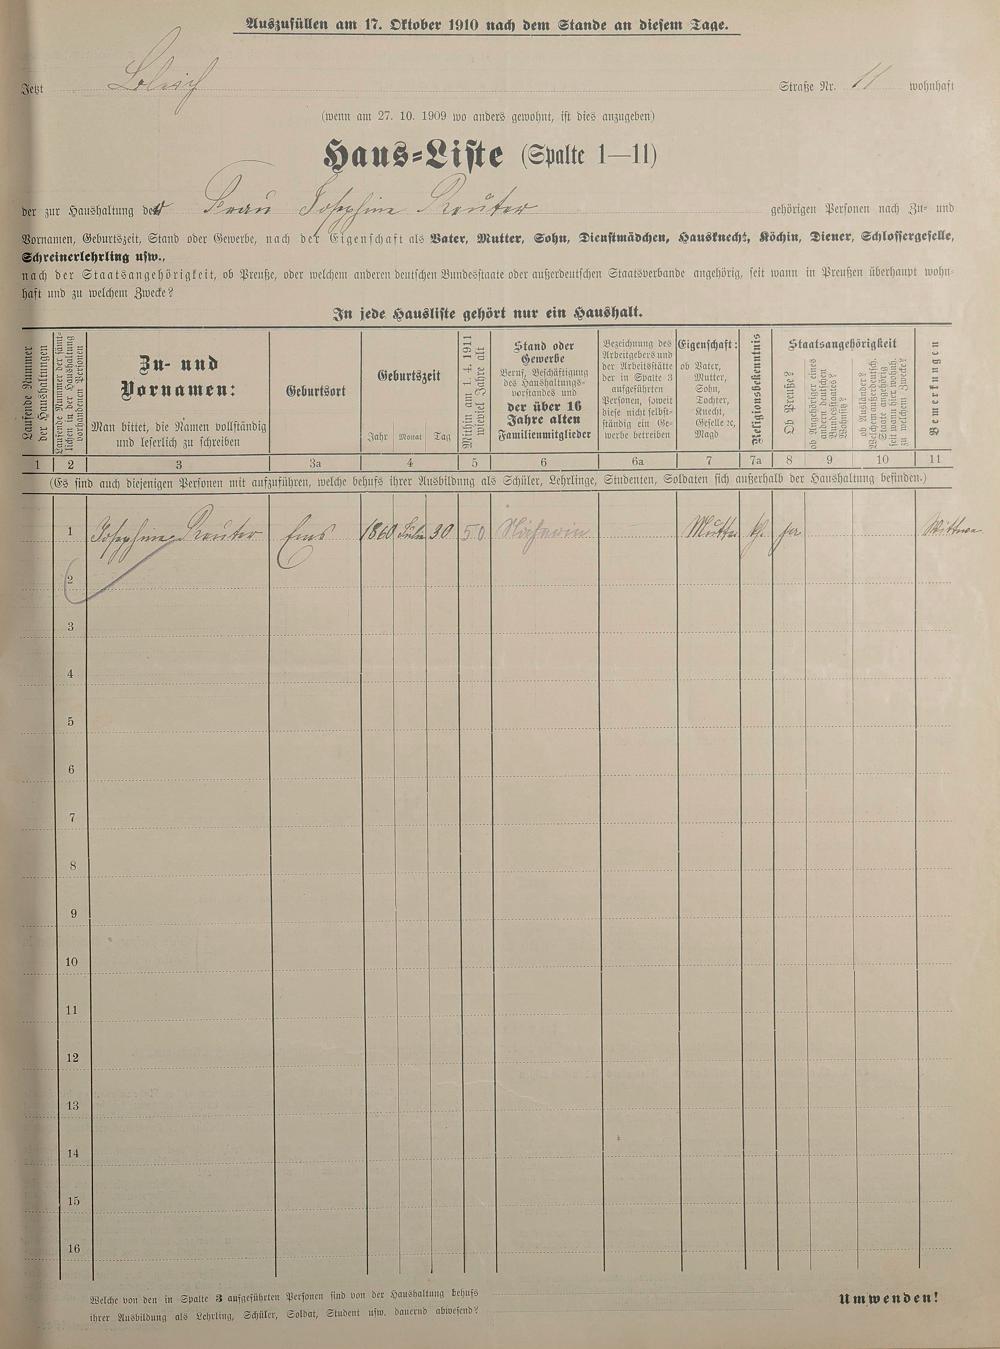 Auszufüllen am 17. Oktober 1910 nach dem Stande an diesem Tage.
Jetzt Straße Nr. 11 wohnhaft
(wenn am 27. 10. 1909 wo anders gewohnt, ist dies anzugeben)
Haus-Liste (Spalte 1—11)
der zur Haushaltung der Frau Josephine Reuter gehörigen Personen nach Zu- und
Vornamen, Geburtszeit, Stand oder Gewerbe, nach der Eigenschaft als Vater, Mutter, Sohn, Dienstmädchen, Hausknecht, Köchin, Diener, Schlossergeselle,
Schreinerlehrling usw.,
nach der Staatsangehörigkeit, ob Preuße, oder welchem anderen deutschen Bundesstaate oder außerdeutschen Staatsverbande angehörig, seit wann in Preußen überhaupt wohn-
haft und zu welchem Zwecke?
In jede Hausliste gehört nur ein Haushalt.
Laufende Nummer
der Haushaltungen
Laufende Nummer der sämt-
lichen in der Haushaltung
vorhandenen Personen
Zu- und
Vornamen:
Man bittet, die Namen vollständig
und leserlich zu schreiben
Geburtsort
Geburtszeit
Jahr Monat Tag
Mithin am 1. 4. 1911
wieviel Jahre alt
Stand oder
Gewerbe
Beruf, Beschäftigung
des Haushaltungs-
vorstandes und
der über 16
Jahre alten
Familienmitglieder
Bezeichnung des
Arbeitgebers und
der Arbeitsstätte
der in Spalte 3
aufgeführten
Personen, soweit
diese nicht selbst-
ständig ein Ge-
werbe betreiben
Eigenschaft:
ob Vater,
Mutter,
Sohn,
Tochter,
Knecht,
Geselle ꝛc,
Magd
Religionsbekenntnis
Staatsangehörigkeit
Ob Preuße?
ob Angehöriger eines
andern deutschen
Bundesstaates?
Wohnsitz?
ob Ausländer?
Welchem außerdeutsch.
Staate angehörig
seit wann hier wohnh.
zu welchem Zwecke?
Bemerkungen
1 2 3 3a 4 5 6 6a 7 7a 8 9 10 11
(Es sind auch diejenigen Personen mit aufzuführen, welche behufs ihrer Ausbildung als Schüler, Lehrlinge, Studenten, Soldaten sich außerhalb der Haushaltung befinden.)
1 Josephine Reuter Ems 1860 Julie 30 50 Näherin Mutter kh. ja Wittwe
2
3
4
5
6
7
8
9
10
11
12
13
14
15
16
Welche von den in Spalte 3 aufgeführten Personen sind von der Haushaltung behufs
ihrer Ausbildung als Lehrling, Schüler, Soldat, Student usw. dauernd abwesend?
Umwenden!